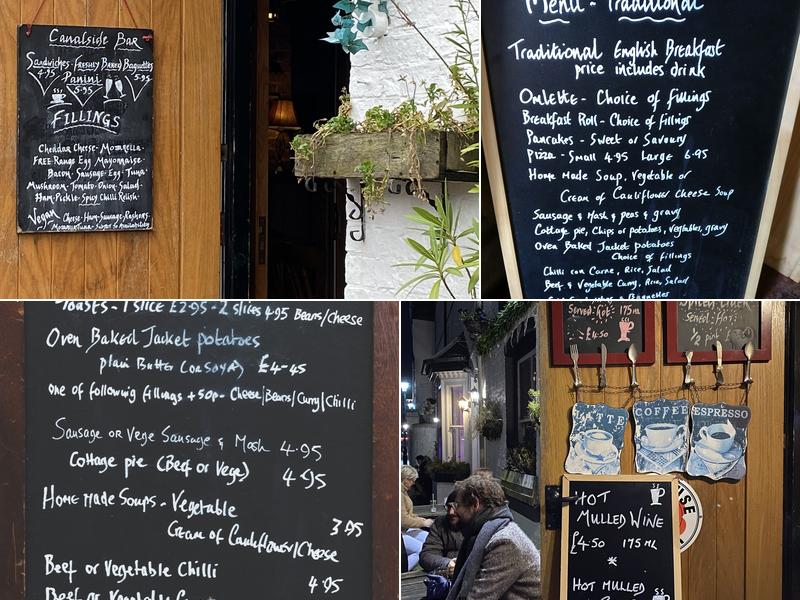 Canalside Bar
Sandwiches - Freshly Baked Baguettes
4.95 Panini 5.95
5.95
FILLINGS
Cheddar Cheese - Mozzarella -
Free-Range Egg Mayonnaise -
Bacon - Sausage - Egg - Tuna -
Mushroom - Tomato - Onion - Salad -
Ham - Pickle - Spicy Chilli Relish -
Vegan Cheese - Ham - Sausage - Rashers -
Menu - Traditional
Traditional English Breakfast
price includes drink
Omlette - Choice of fillings
Breakfast Roll - Choice of fillings
Pancakes - Sweet or Savoury
Pizza - Small 4.95 Large 6.95
Home Made Soup, Vegetable or
Cream of Cauliflower Cheese Soup
Sausage & Mash & peas & gravy
Cottage pie, Chips or potatoes, vegetables, gravy
Oven Baked Jacket potatoes
Choice of fillings
Chilli con Carne, Rice, Salad
Beef & Vegetable Curry, Rice, Salad
Toasts - 1 slice £2.95 - 2 slices 4.95 Beans/Cheese
Oven Baked Jacket potatoes
plain Butter (or SOYA) £4-45
one of following fillings + 50p - Cheese/Beans/Curry/Chilli
Sausage or Vege Sausage & Mash 4.95
Cottage pie (Beef or Vege) 4.95
Home Made Soups - Vegetable
Cream of Cauliflower/Cheese 3.95
Beef or Vegetable Chilli 4.95
Served Hot: 175ml
£4.50
Served: Hot:
1/2 pint
LATTE
COFFEE
ESPRESSO
HOT
MULLED WINE
£4.50 175 ML
HOT MULLED